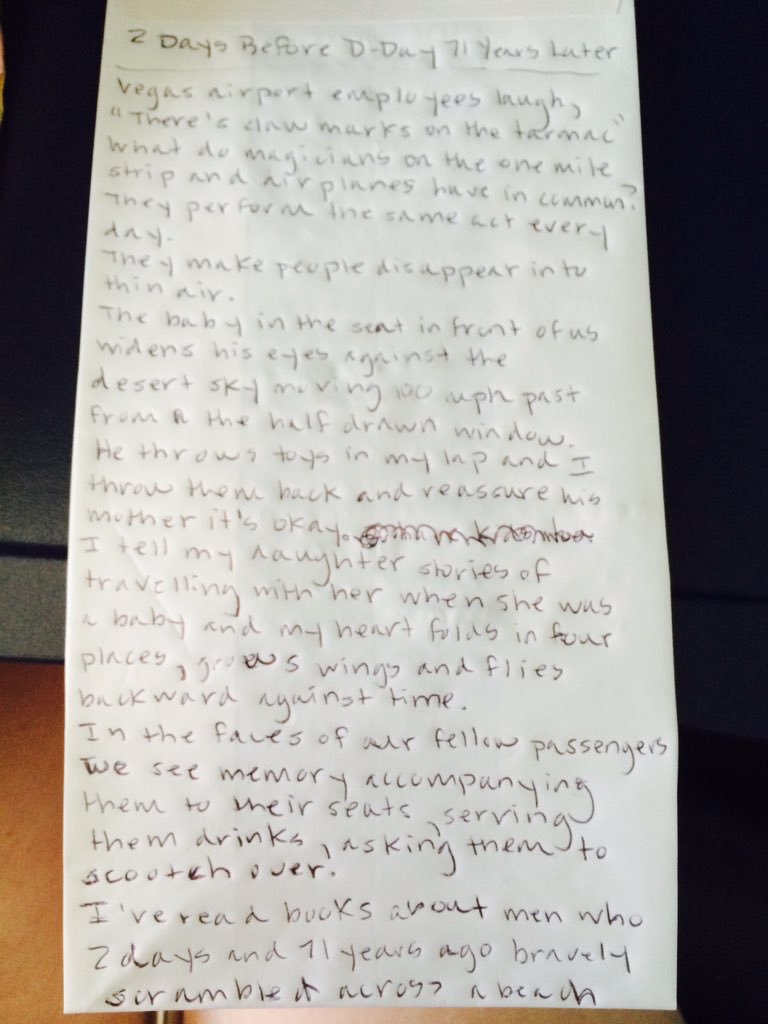 2 Days Before D-Day 71 Years Later
Vegas airport employees laugh,
"There's claw marks on the tarmac"
What do magicians on the one mile
strip and airplanes have in common?
They perform the same act every
day.
They make people disappear into
thin air.
The baby in the seat in front of us
widens his eyes against the
desert sky moving 100 mph past
from the half drawn window.
He throws toys in my lap and I
throw them back and reassure his
mother it's okay.
I tell my daughter stories of
travelling with her when she was
a baby and my heart folds in four
places, grows wings and flies
backward against time.
In the faces of our fellow passengers
we see memory accompanying
them to their seats, serving
them drinks, asking them to
scootch over.
I've read books about men who
2 days and 71 years ago bravely
scrambled across a beach